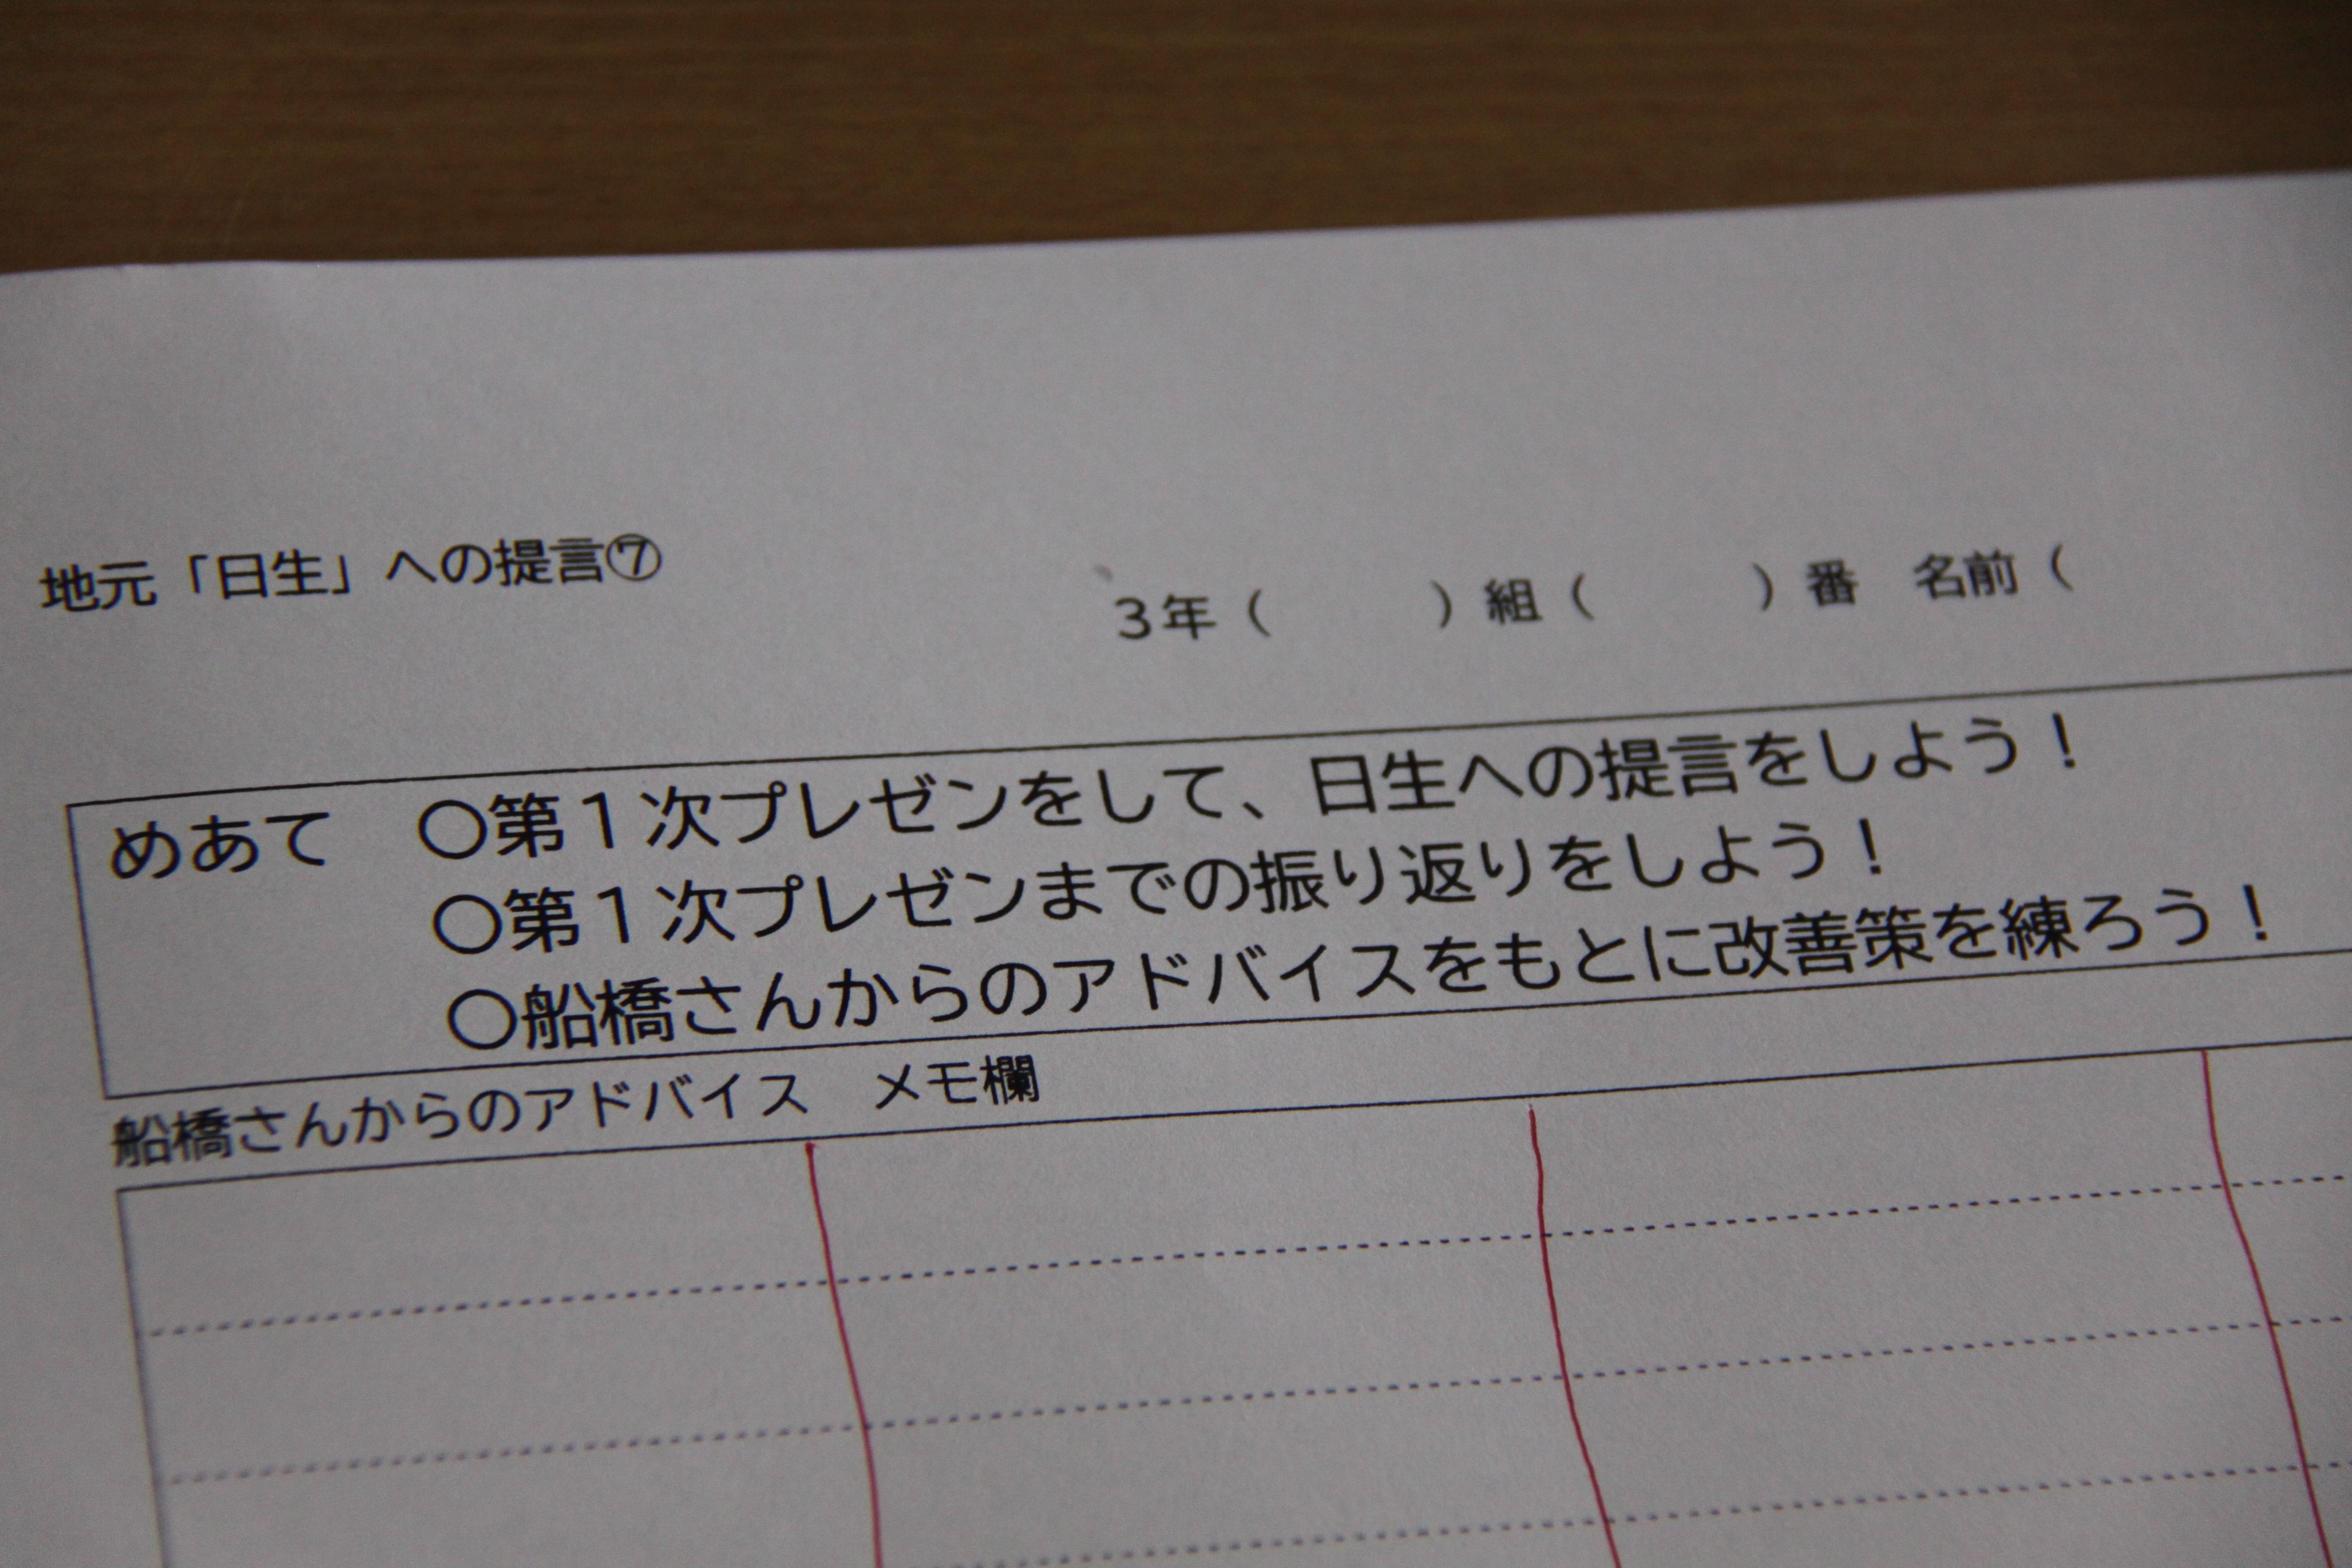 地元「日生」への提言⑦
3年（　　　）組（　　　）番　名前（
めあて　〇第１次プレゼンをして、日生への提言をしよう！
〇第１次プレゼンまでの振り返りをしよう！
〇船橋さんからのアドバイスをもとに改善策を練ろう！
船橋さんからのアドバイス　メモ欄